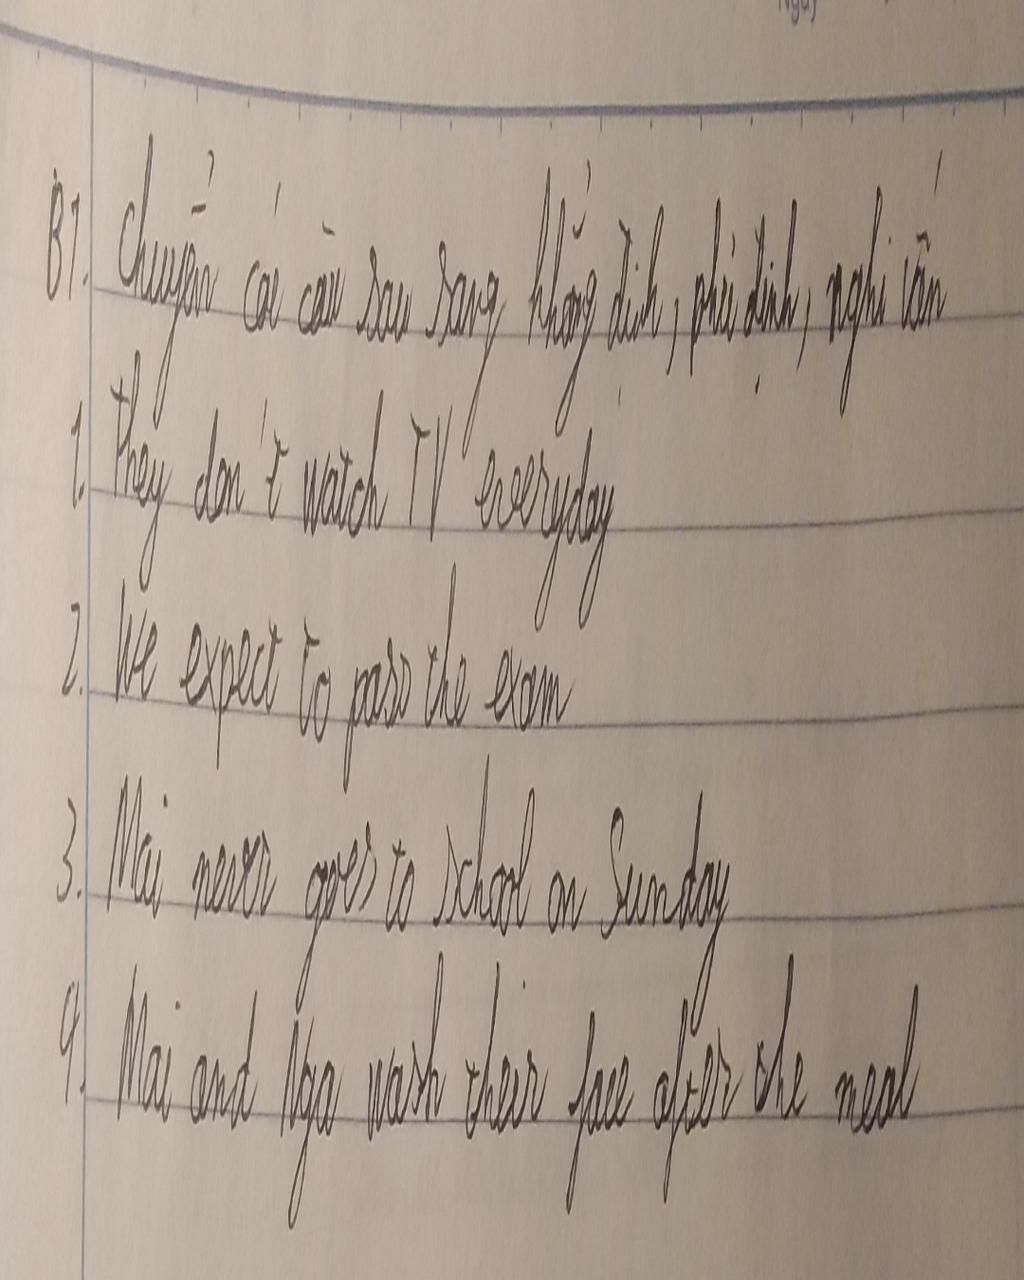 Ngày
B1. Chuyển các câu sau sang khẳng định, phủ định, nghi vấn
1. They don't watch TV everyday
2. We expect to pass the exam
3. Mai never goes to school on Sunday
4. Mai and Nga wash their face after the meal